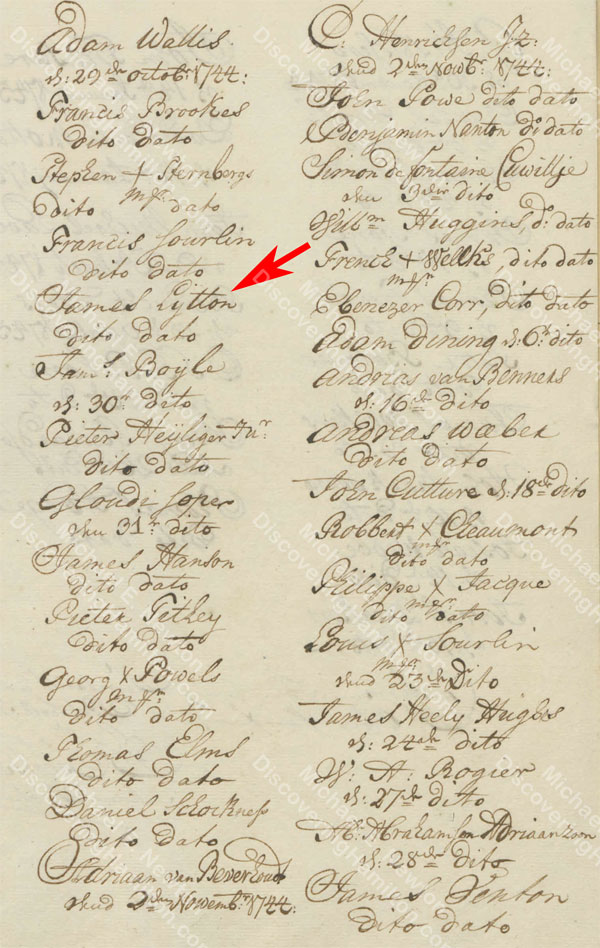 Adam Wallis.
d: 29den octobr 1744:
Francis Brookes
dito dato
Stephen + Sternbergs
dito m/k dato
Francis Sourlin
dito dato
James Lytton
dito dato
Jams: Boÿle
d: 30n dito
Pieter Heÿliger Jur:
dito dato
Gloudi Soper
den 31n dito
James Hanson
dito dato
Pieter Tetley
dito dato
Georg X Powels
dito dato
Thomas Elms
dito dato
Daniel Schockness
dito dato
Adriaan van Beverhoudt
2den Novembr: 1744:
C: Henricksen Jz:
2den Novbr: 1744:
John Powe dito dato
Benjamin Nanton do dato
Simon de fontaine Cuvillje
den 3der dito
Willm Huggins, do: dato
French + Welks, dito dato
Ebenezer Corr, dito dato
Adam Dining d: 6n dito
Andrias van Benners
d: 16de dito
Andreas Waber
dito dato
John Cutture d: 18de dito
Robbert X Cheaumont
dito dato
Philippe X Jacque
dito dato
Louis X Sourlin
23de Dito
James Heely Hughes
d: 24de dito
W: A: Rogier
d: 27de dito
Ab: Abrahamsen Adriaanzoon
d: 28de dito
James Fenton
dito dato